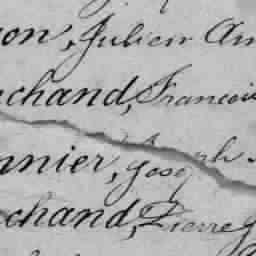 on, Julien Am
chand, Francois
nnier, Joseph
chand, Pierre J